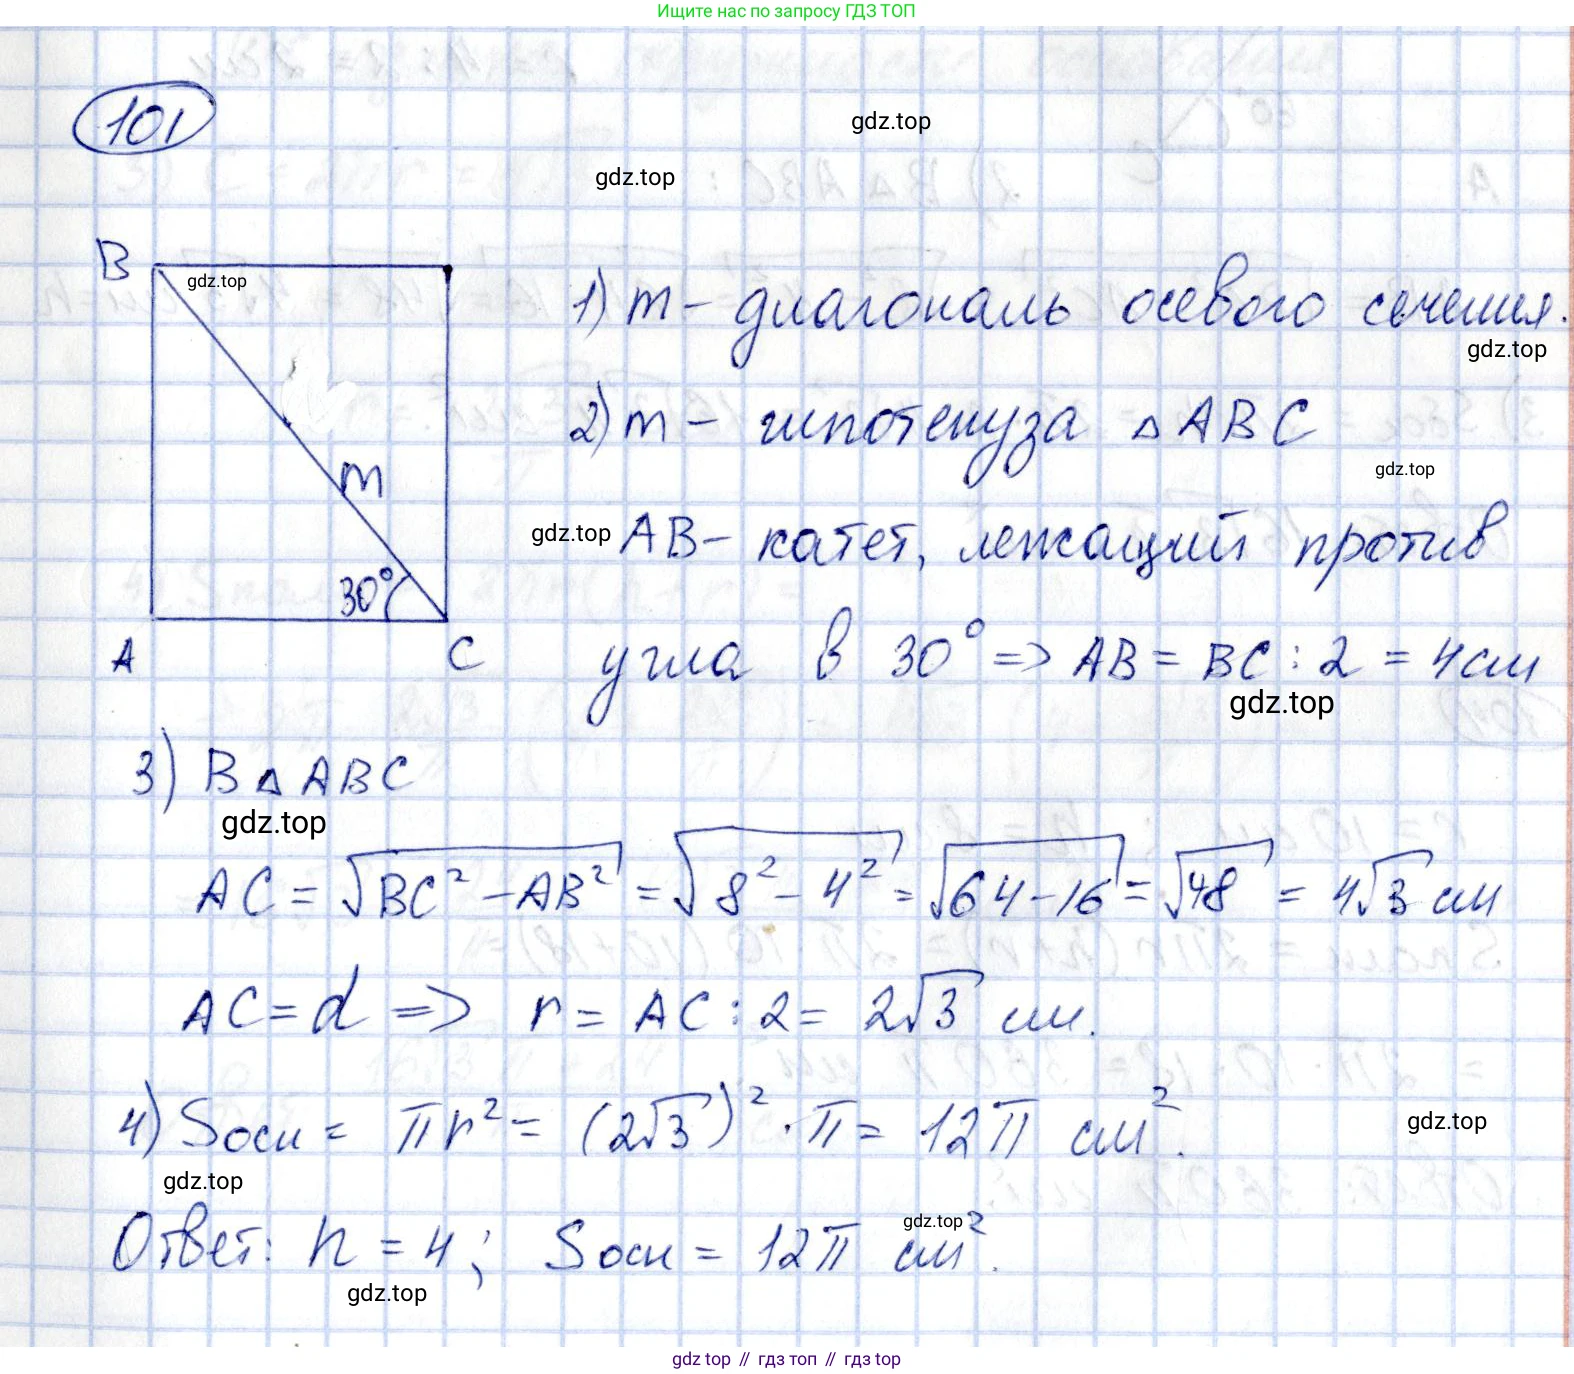 Ищите нас по запросу ГДЗ ТОП
101
gdz.top
gdz.top
B
gdz.top
1) m – диагональ осевого сечения.
gdz.top
2) m – гипотенуза △ ABC
gdz.top
m
gdz.top
AB – катет, лежащий против
30°
A
C
угла в 30° => AB = BC : 2 = 4 см
gdz.top
3) В △ ABC
gdz.top
AC = √(BC² – AB²) = √(8² – 4²) = √(64 – 16) = √48 = 4√3 см
AC = d => r = AC : 2 = 2√3 см.
4) Sосн = πr² = (2√3)² · π = 12π см².
gdz.top
gdz.top
Ответ: h = 4; Sосн = 12π см².
gdz.top
gdz.top
gdz top // гдз топ // гдз top